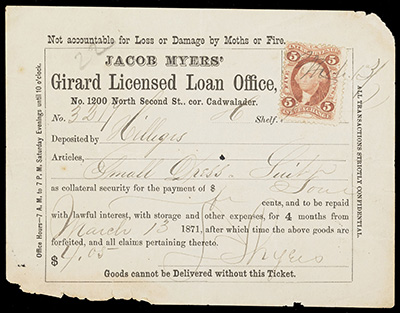 Not accountable for Loss or Damage by Moths or Fire.
JACOB MYERS'
Girard Licensed Loan Office,
No. 1200 North Second St., cor. Cadwalader.
No. Shelf.
Deposited by
Articles,
Small Dress
as collateral security for the payment of $
cents, and to be repaid
with lawful interest, with storage and other expenses, for 4 months from
March 13 1871, after which time the above goods are
forfeited, and all claims pertaining thereto.
$ J Myers
Goods cannot be Delivered without this Ticket.
Office Hours—7 A. M. to 7 P. M. Saturday Evenings until 10 o'clock.
ALL TRANSACTIONS STRICTLY CONFIDENTIAL.
5 5